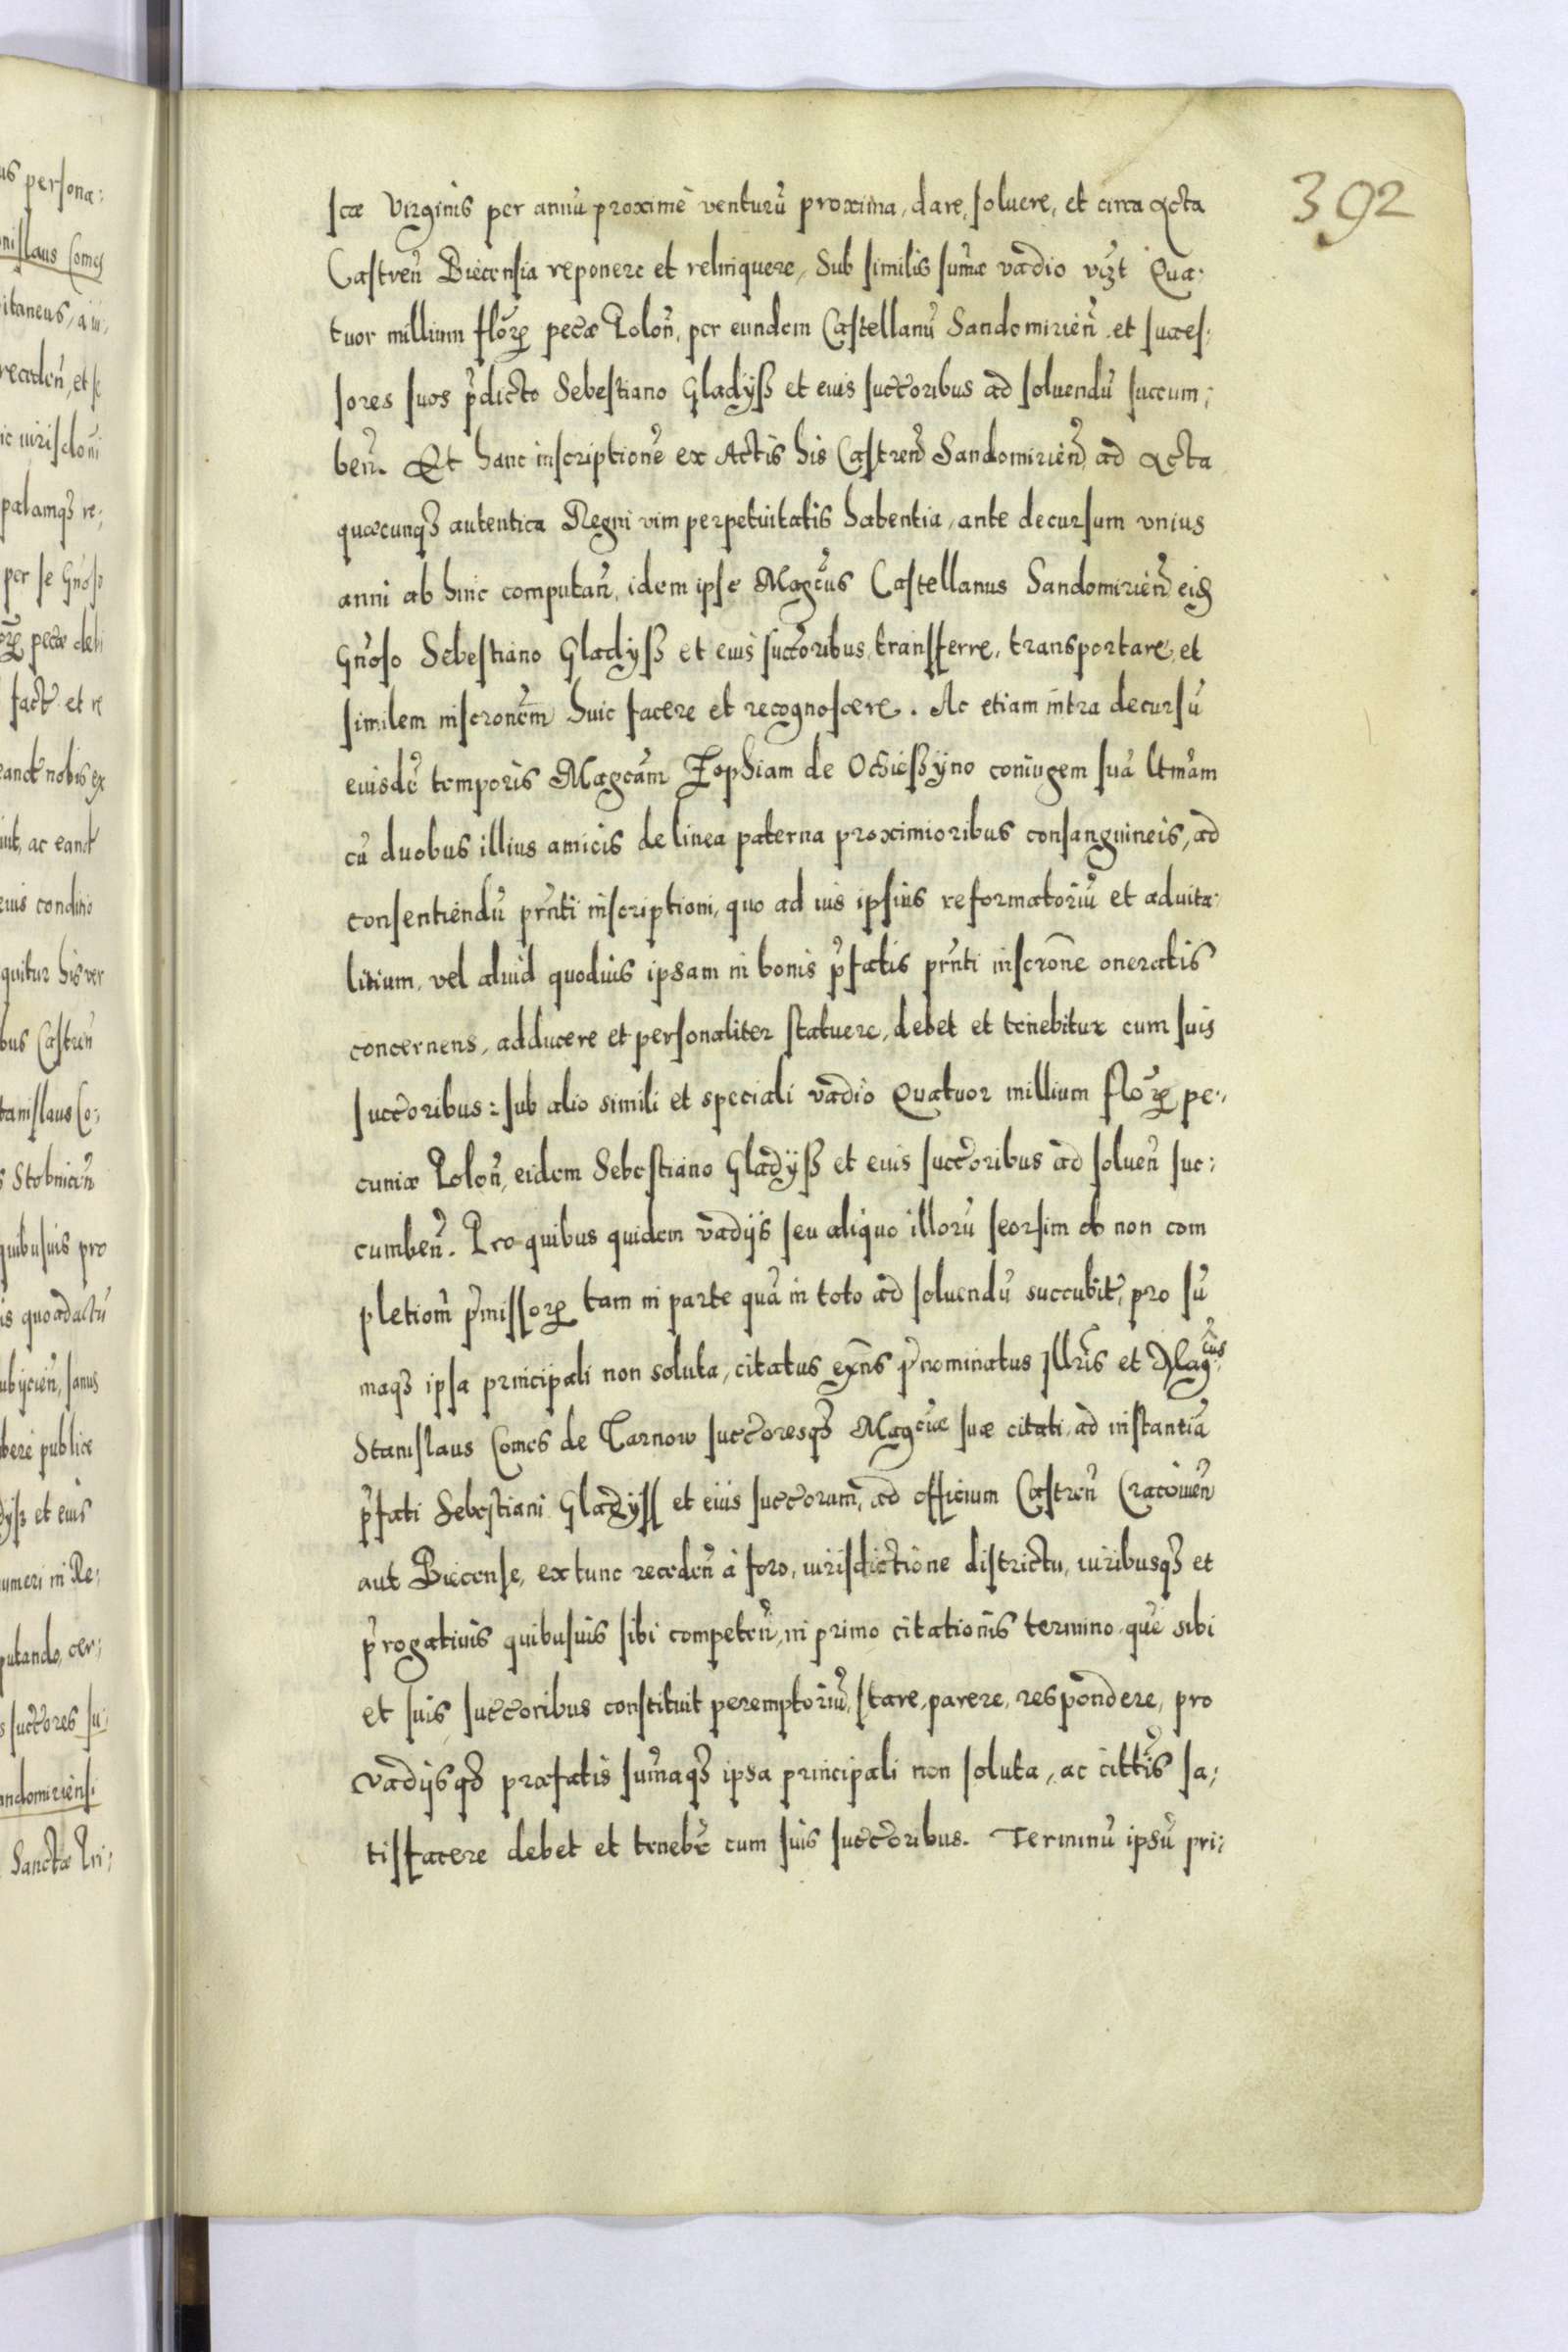 392
scæ Virginis per annū proximè venturū proxima, dare, soluere, et circa Acta
Castren̄ Biecensia reponere et relinquere, Sub similis sum̄æ vadio vizt Qua:
tuor millium florꝝ pec̄æ Polon̄, per eundem Castellanū Sandomirien̄ et succes:
sores suos p̄dicto Sebestiano Gladyß et eius succ̄oribus ad soluendū succum:
ben̄. Et hanc inscriptionē ex Actis his Castren̄ Sandomirien̄ ad Acta
quæcunqꝫ autentica Regni vim perpetuitatis habentia, ante decursum vnius
anni ab hinc computan̄, idem ipse Magc̄us Castellanus Sandomirien̄ eid
Gn̄oso Sebestiano Gladyß et eius succ̄oribus, transferre, transportare, et
similem inscron̄em huic facere et recognoscere. Ac etiam intra decursū
eiusdē temporis Magcām Zophiam de Ocießyno coniugem suā ltm̄am
cū duobus illius amicis de linea paterna proximioribus consanguineis, ad
consentiendū pn̄ti inscriptioni, quo ad ius ipsius reformatoriū et aduita:
litium, vel aliud quoduis ipsam in bonis p̄fatis pn̄ti inscrōne oneratis
concernens, adducere et personaliter statuere, debet et tenebitur cum suis
succ̄oribus: sub alio simili et speciali vadio Quatuor millium florꝝ pe:
cuniæ Polon̄, eidem Sebestiano Gladyß et eius succ̄oribus ad soluen̄ suc:
cumben̄. Pro quibus quidem vadijs seu aliquo illorū seorsim ob non com
pletiom̄ p̄missorꝝ tam in parte quā in toto ad soluendū succubit, pro sū
maqꝫ ipsa principali non soluta, citatus exn̄s p̄nominatus Illris̄ et Magc̄us
Stanislaus Comes de Tarnow succ̄oresqꝫ Magc̄iæ suæ citati, ad instantiā
p̄fati Sebestiani Gladyß et eius succ̄orum, ad officium Castren̄ Cracouien̄
aut Biecense, ex tunc receden̄ à foro, iurisdictione districtu, iuribusqꝫ et
p̄rogatiuis quibusuis sibi competen̄, in primo citationis termino, quē sibi
et suis succ̄oribus constituit peremptoriū, stare, parere, respondere, pro
vadijsqꝫ præfatis sum̄aqꝫ ipsa principali non soluta, ac citt̄is sa:
tisfacere debet et tenebr̄ cum suis succ̄oribus. Terminū ipsū pri: